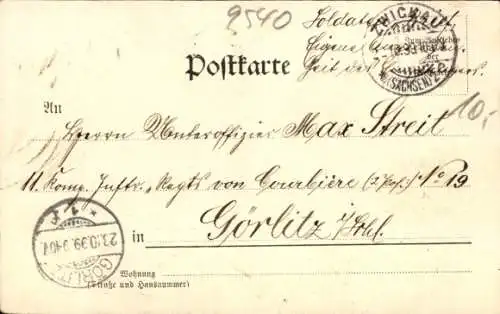 9540
Soldatenbrief.
Eigene Angelegenheit des Empfängers.
ZWICKAU
(SACHSEN)
Postkarte
10,-
An
Herrn Unteroffizier Max Streit
11. Komp. Inftr. „Regts von Courbière (2. Pos.) No 19
in Görlitz i/Schl.
GÖRLITZ
23.10.99.
Wohnung
(Straße und Hausnummer)